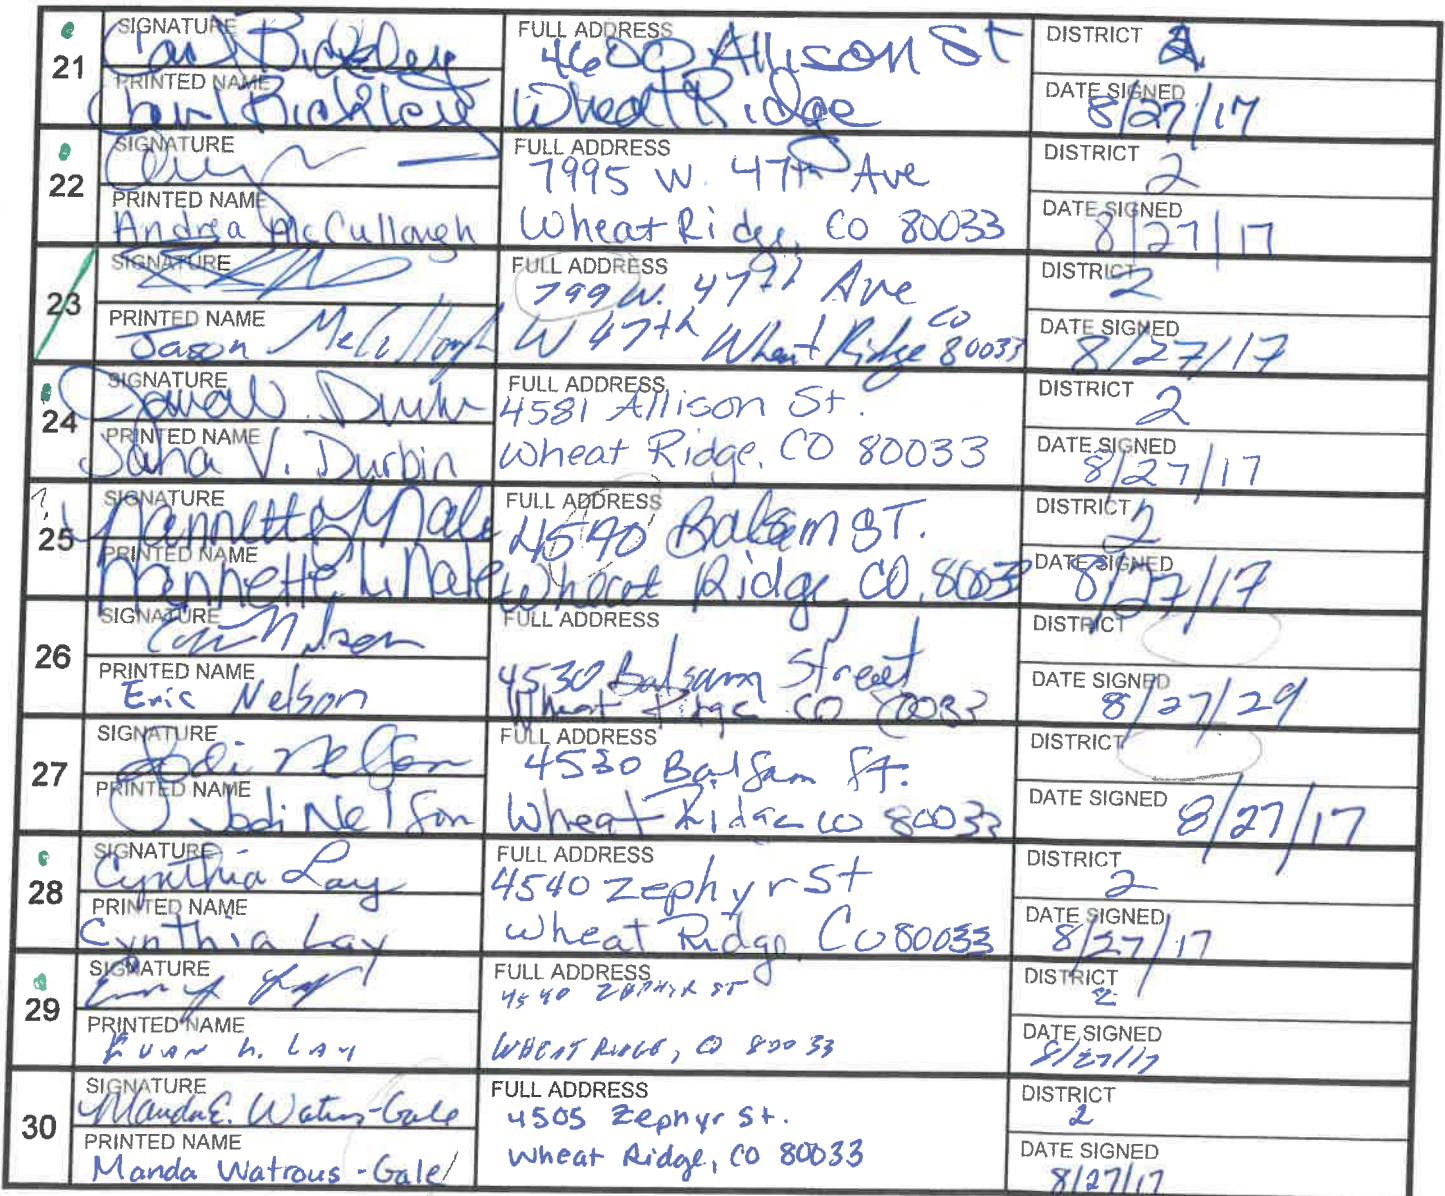 21
SIGNATURE
Carl Bickley
PRINTED NAME
Carl Bickley
FULL ADDRESS
4600 Allison St
Wheat Ridge
DISTRICT 2
DATE SIGNED
8/27/17
22
SIGNATURE
PRINTED NAME
Andrea McCullough
FULL ADDRESS
7995 W. 47th Ave
Wheat Ridge, CO 80033
DISTRICT
2
DATE SIGNED
8/27/17
23
SIGNATURE
PRINTED NAME
Jason McCullough
FULL ADDRESS
799 W. 47th Ave
W 47th Wheat Ridge CO 80033
DISTRICT
2
DATE SIGNED
8/27/17
24
SIGNATURE
PRINTED NAME
V. Durbin
FULL ADDRESS
4581 Allison St.
Wheat Ridge, CO 80033
DISTRICT
2
DATE SIGNED
8/27/17
?
25
SIGNATURE
Nannette
PRINTED NAME
Nannette
FULL ADDRESS
4590 Balsam ST.
Wheat Ridge, CO, 80033
DISTRICT
2
DATE SIGNED
8/27/17
26
SIGNATURE
Eric Nelson
PRINTED NAME
Eric Nelson
FULL ADDRESS
4530 Balsam Street
Wheat Ridge CO 80033
DISTRICT
DATE SIGNED
8/27/29
27
SIGNATURE
Jodi Nelson
PRINTED NAME
Jodi Nelson
FULL ADDRESS
4530 Balsam St.
Wheat Ridge CO 80033
DISTRICT
DATE SIGNED
8/27/17
28
SIGNATURE
Cynthia Lay
PRINTED NAME
Cynthia Lay
FULL ADDRESS
4540 Zephyr St
Wheat Ridge, CO 80033
DISTRICT
2
DATE SIGNED
8/27/17
29
SIGNATURE
PRINTED NAME
EVAN H. LAY
FULL ADDRESS
4540 ZEPHYR ST
WHEAT RIDGE, CO 80033
DISTRICT
2
DATE SIGNED
8/27/17
30
SIGNATURE
Manda E. Watrous-Gale
PRINTED NAME
Manda Watrous-Gale
FULL ADDRESS
4505 Zephyr St.
Wheat Ridge, CO 80033
DISTRICT
2
DATE SIGNED
8/27/17